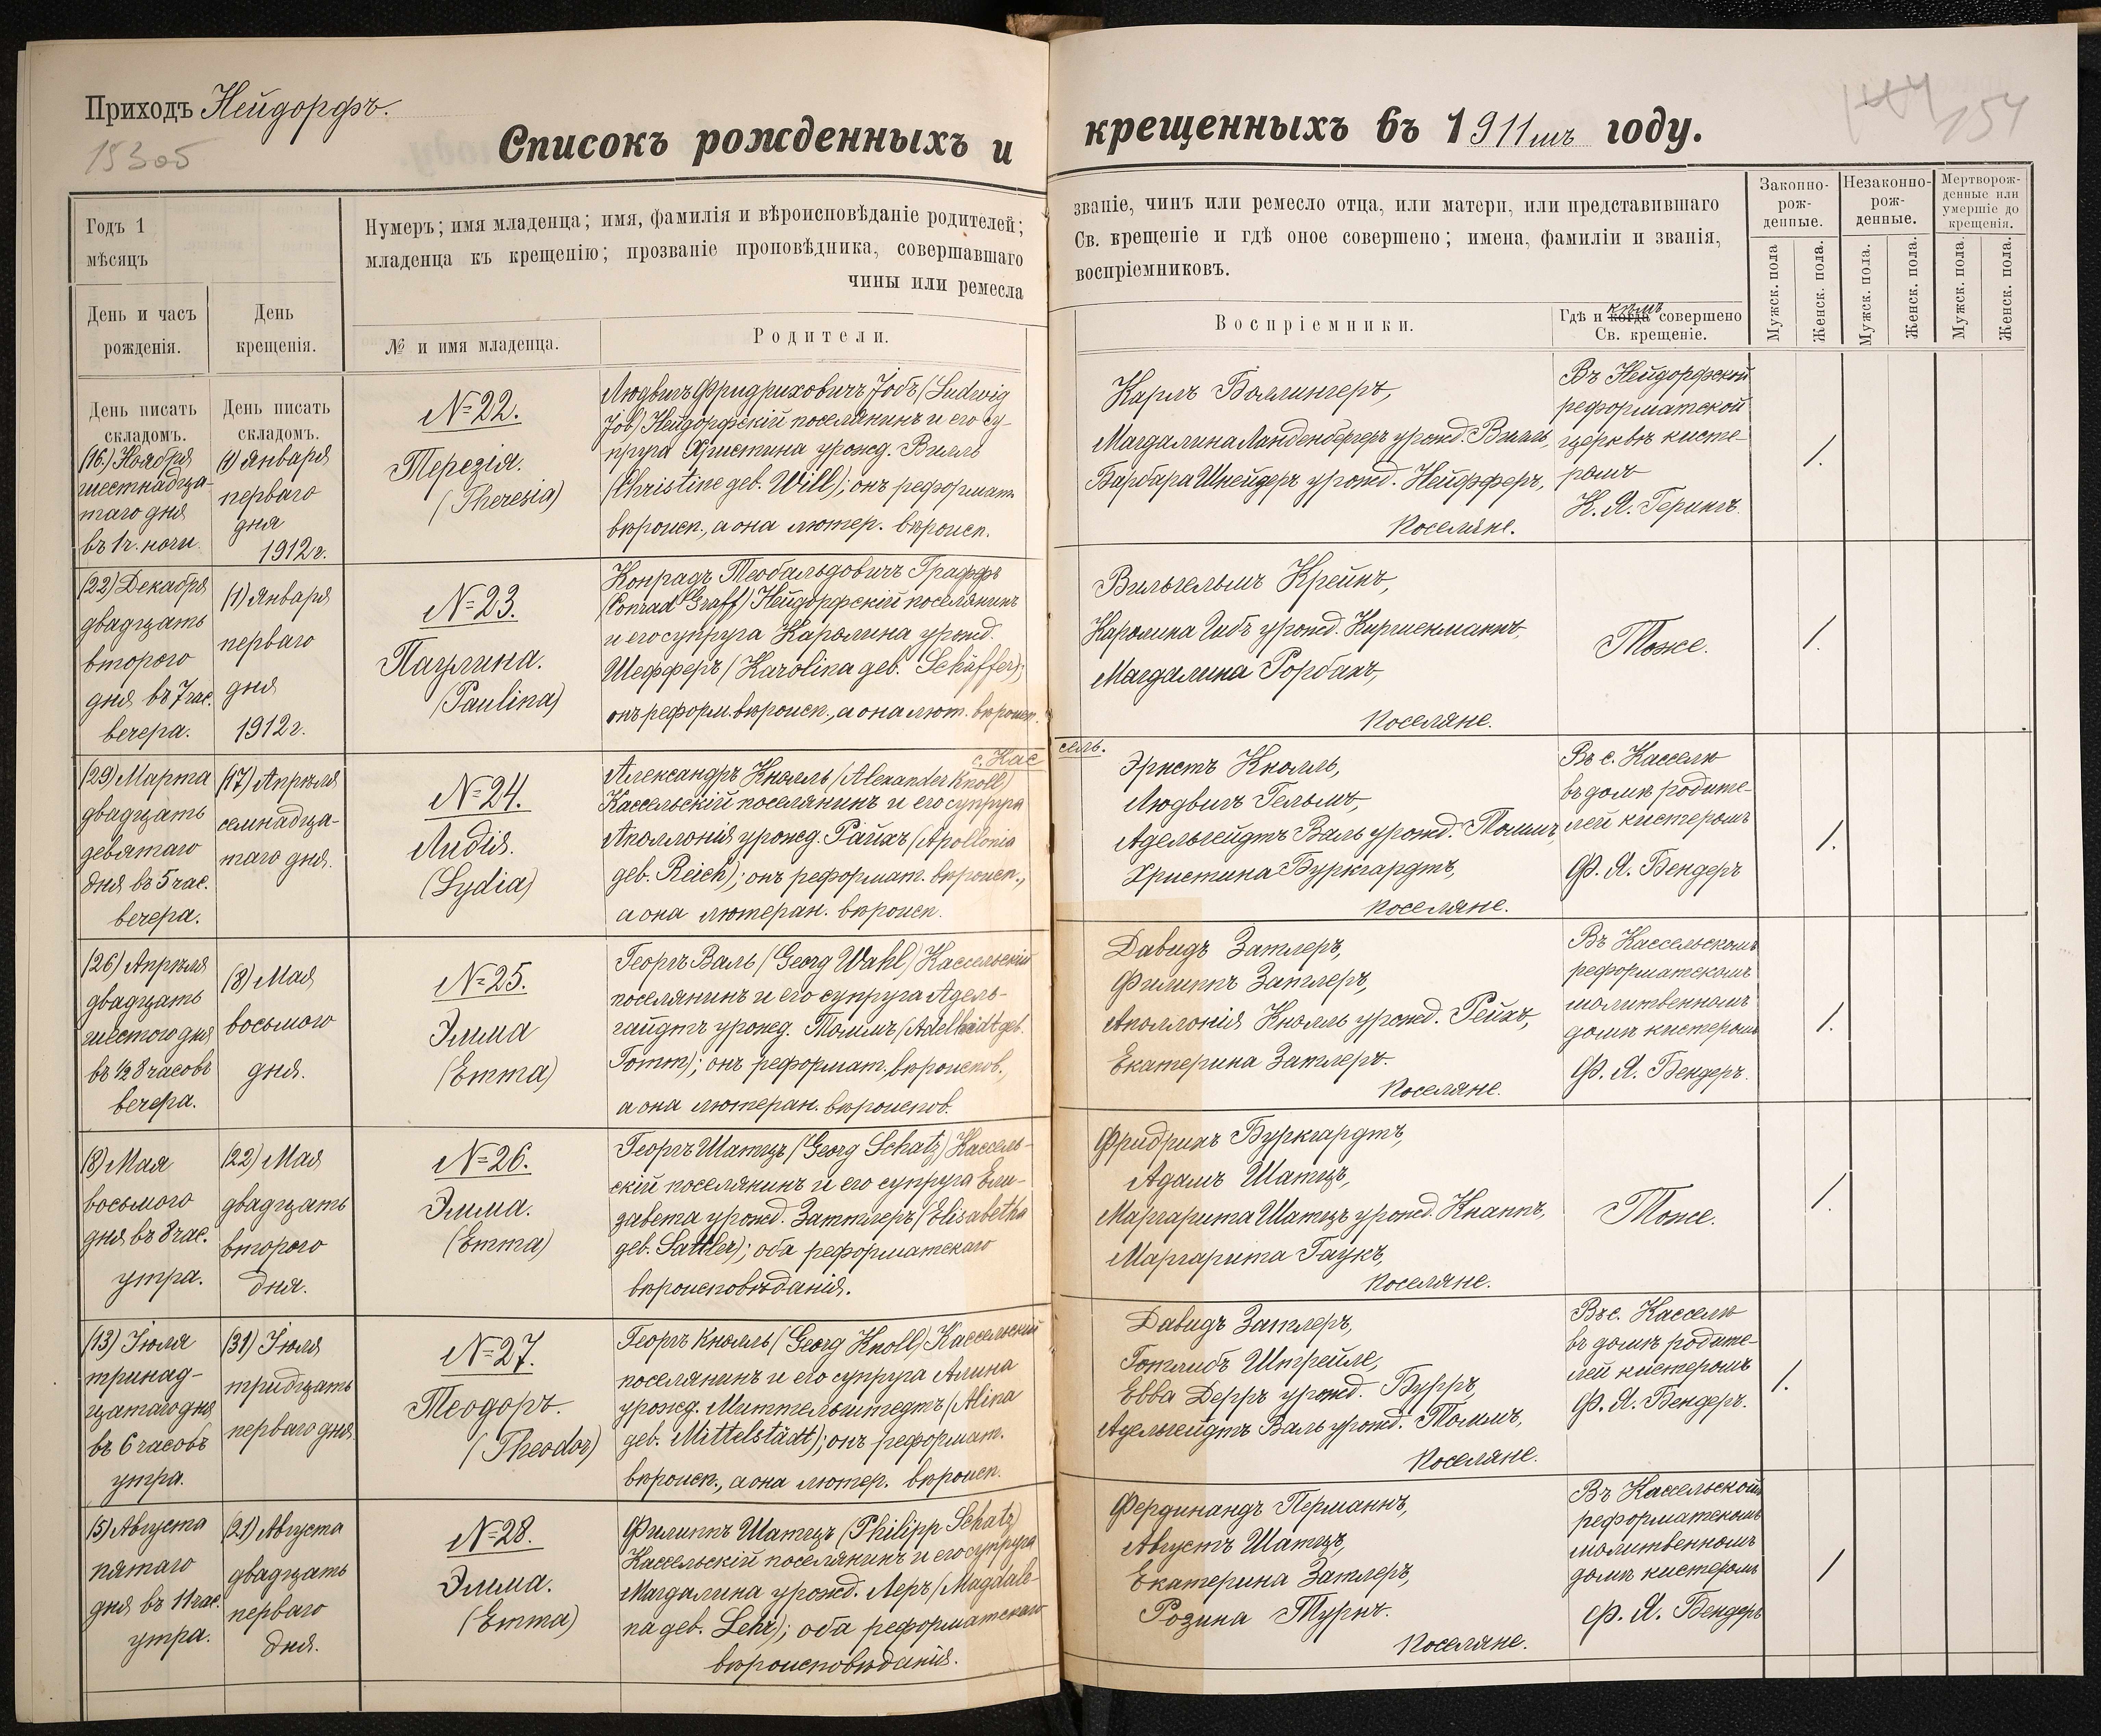 Приходъ Нейдорфъ.
153об
154
Списокъ рожденныхъ и крещенныхъ въ 1911мъ году.
Годъ 1
мѣсяцъ
Нумеръ; имя младенца; имя, фамилія и вѣроисповѣданіе родителей;
младенца къ крещенію; прозваніе проповѣдника, совершавшаго
чины или ремесла
званіе, чинъ или ремесло отца, или матери, или представившаго
Св. крещеніе и гдѣ оное совершено; имена, фамиліи и званія,
воспріемниковъ.
Законно-
рож-
денные.
Незаконно-
рож-
денные.
Мертворож-
денные или
умершіе до
крещенія.
Мужск. пола
Женск. пола.
Мужск. пола.
Женск. пола.
Мужск. пола.
Женск. пола.
День и часъ
рожденія.
День
крещенія.
№ и имя младенца.
Родители.
Воспріемники.
кѣмъ
Гдѣ и когда совершено
Св. крещеніе.
День писать
складомъ.
День писать
складомъ.
(16.) Ноября
шестнадца-
таго дня
въ 1 ч. ночи.
(1) Января
перваго
дня
1912 г.
№ 22.
Терезія.
(Theresia)
Людвигъ Фридриховичъ Јобъ (Ludwig
Job) Нейдорфскій поселянинъ и его су-
пруга Христина урожд. Вилль
(Christine geb. Will); онъ реформат.
вѣроисп., а она лютер. вѣроисп.
Карлъ Боллингеръ,
Магдалина Ланденбергеръ урожд. Вилль,
Барбара Шнейдеръ урожд. Нейфферъ,
поселяне.
Въ Нейдорфской
реформатской
церквѣ кисте-
ромъ
К. Я. Герингъ.
1.
(22) Декабря
двадцать
второго
дня въ 7 час.
вечера.
(1) Января
перваго
дня
1912 г.
№ 23.
Паулина.
(Paulina)
Конрадъ Теобальдовичъ Граффъ
(Conrad Graff) Нейдорфскій поселянинъ
и его супруга Каролина урожд.
Шефферъ (Karolina geb. Schäffer);
онъ реформ. вѣроисп., а она лют. вѣроисп.
Вильгельмъ Крейнъ,
Каролина Гибъ урожд. Киршенманнъ,
Магдалина Рорбахъ,
поселяне.
Тоже.
1.
(29) Марта
двадцать
девятаго
дня въ 5 час.
вечера.
(17) Апрѣля
семнадца-
таго дня.
№ 24.
Лидія.
(Lydia)
с. Кас
сель.
Александръ Кнолль (Alexander Knoll)
Кассельскій поселянинъ и его супруга
Аполлонія урожд. Райхъ (Apollonia
geb. Reich); онъ реформат. вѣроисп.,
а она лютеран. вѣроисп.
Эрнстъ Кнолль,
Людвигъ Гельмъ,
Адельгейдтъ Валь урожд. Томмъ,
Христина Бургардтъ,
поселяне.
Въ с. Касселѣ
въ домѣ родите-
лей кистеромъ
Ф. Я. Бендеръ
1.
(26) Апрѣля
двадцать
шестого дня
въ ½ 8 часовъ
вечера.
(8) Мая
восьмого
дня.
№ 25.
Эмма
(Emma)
Георгъ Валь (Georg Wahl) Кассельскій
поселянинъ и его супруга Адель-
гайдтъ урожд. Томмъ (Adelheidt geb.
Tomm); онъ реформат. вѣроисков.,
а она лютеран. вѣроиспов.
Давидъ Затлеръ,
Филиппъ Затлеръ,
Аполлонія Кнолль урожд. Рейхъ,
Екатерина Затлеръ.
поселяне.
Въ Кассельскомъ
реформатскомъ
молитвенномъ
домѣ кистеромъ
Ф. Я. Бендеръ.
1.
(8) Мая
восьмого
дня въ 8 час.
утра.
(22) Мая
двадцать
второго
дня.
№ 26.
Эмма.
(Emma)
Георгъ Шатцъ (Georg Schatz) Кассель-
скій поселянинъ и его супруга Ели-
завета урожд. Заттлеръ (Elisabetha
geb. Sattler); оба реформатскаго
вѣроисповѣданія.
Фридрихъ Бургардтъ,
Адамъ Шатцъ,
Маргарита Шатцъ урожд. Кнаппъ,
Маргарита Гаукъ,
поселяне.
Тоже.
1.
(13) Іюля
тринад-
цатаго дня
въ 6 часовъ
утра.
(31) Іюля
тридцать
перваго дня.
№ 27.
Теодоръ.
(Theodor)
Георгъ Кнолль (Georg Knoll) Кассельскій
поселянинъ и его супруга Алина
урожд. Миттельштедтъ (Alina
geb. Mittelstädt); онъ реформат.
вѣроисп., а она лютер. вѣроисп.
Давидъ Затлеръ,
Готлибъ Штрейле,
Евва Дерръ урожд. Бурръ,
Адельгейдтъ Валь урожд. Томмъ,
поселяне.
Въ с. Касселѣ
въ домѣ родите-
лей кистеромъ
Ф. Я. Бендеръ.
1.
(5) Августа
пятаго
дня въ 11 час.
утра.
(21) Августа
двадцать
перваго
дня.
№ 28.
Эмма.
(Emma)
Филиппъ Шатцъ (Philipp Schatz)
Кассельскій поселянинъ и его супруга
Магдалина урожд. Леръ (Magdale-
na geb. Lehr); оба реформатскаго
вѣроисповѣданія.
Фердинандъ Германнъ,
Августъ Шатцъ,
Екатерина Затлеръ,
Розина Турнъ.
поселяне.
Въ Кассельскомъ
реформатскомъ
молитвенномъ
домѣ кистеромъ
Ф. Я. Бендеръ
1